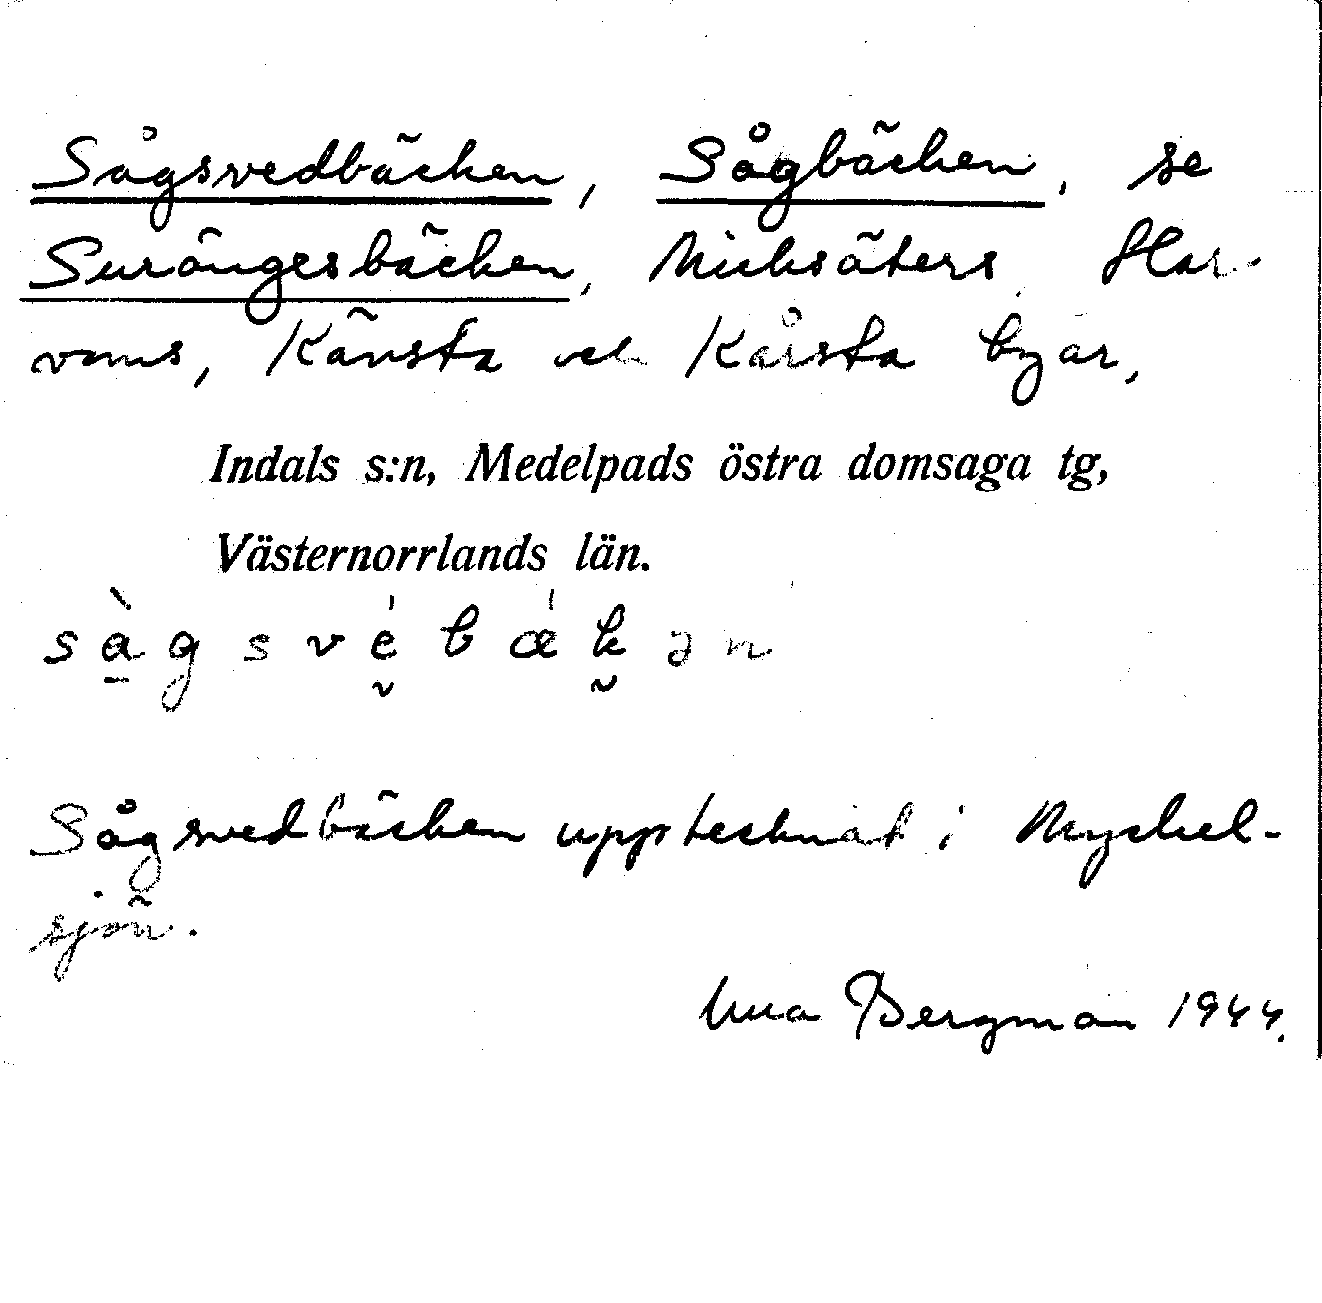 Sågsvedbäcken, Sågbäcken, se
Surängesbäcken, Nicksäters, Har-
voms, Känsta och Kårsta byar,
Indals s:n, Medelpads östra domsaga tg,
Västernorrlands län.
sà̱gsvé̬bǽk̬ən
Sågsvedbäcken upptecknat i Myckel-
sjön.
Una Bergman 1944.